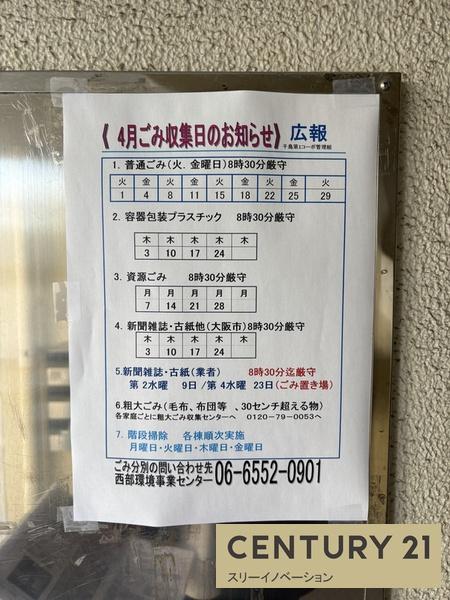 《 4月ごみ収集日のお知らせ》 広報
千島第1コーポ管理組
1. 普通ごみ(火. 金曜日)8時30分厳守
火 金 火 金 火 金 火 火
1 4 8 11 15 18 22 25 29
2. 容器包装プラスチック 8時30分厳守
木 木 木 木
3 10 17 24
3. 資源ごみ 8時30分厳守
月 月 月 月
7 14 21 28
4. 新聞雑誌・古紙他(大阪市)8時30分厳守
木 木 木 木
3 10 17 24
5.新聞雑誌・古紙(業者) 8時30分迄厳守
第 2水曜 9日 /第 4水曜 23日(ごみ置き場)
6.粗大ごみ(毛布、布団等 、30センチ超える物)
各家庭ごとに粗大ごみ収集センターへ 0120-79-0053へ
7. 階段掃除 各棟順次実施
月曜日・火曜日・木曜日・金曜日
ごみ分別の問い合わせ先
西部環境事業センター 06-6552-0901
CENTURY 21
スリーイノベーション